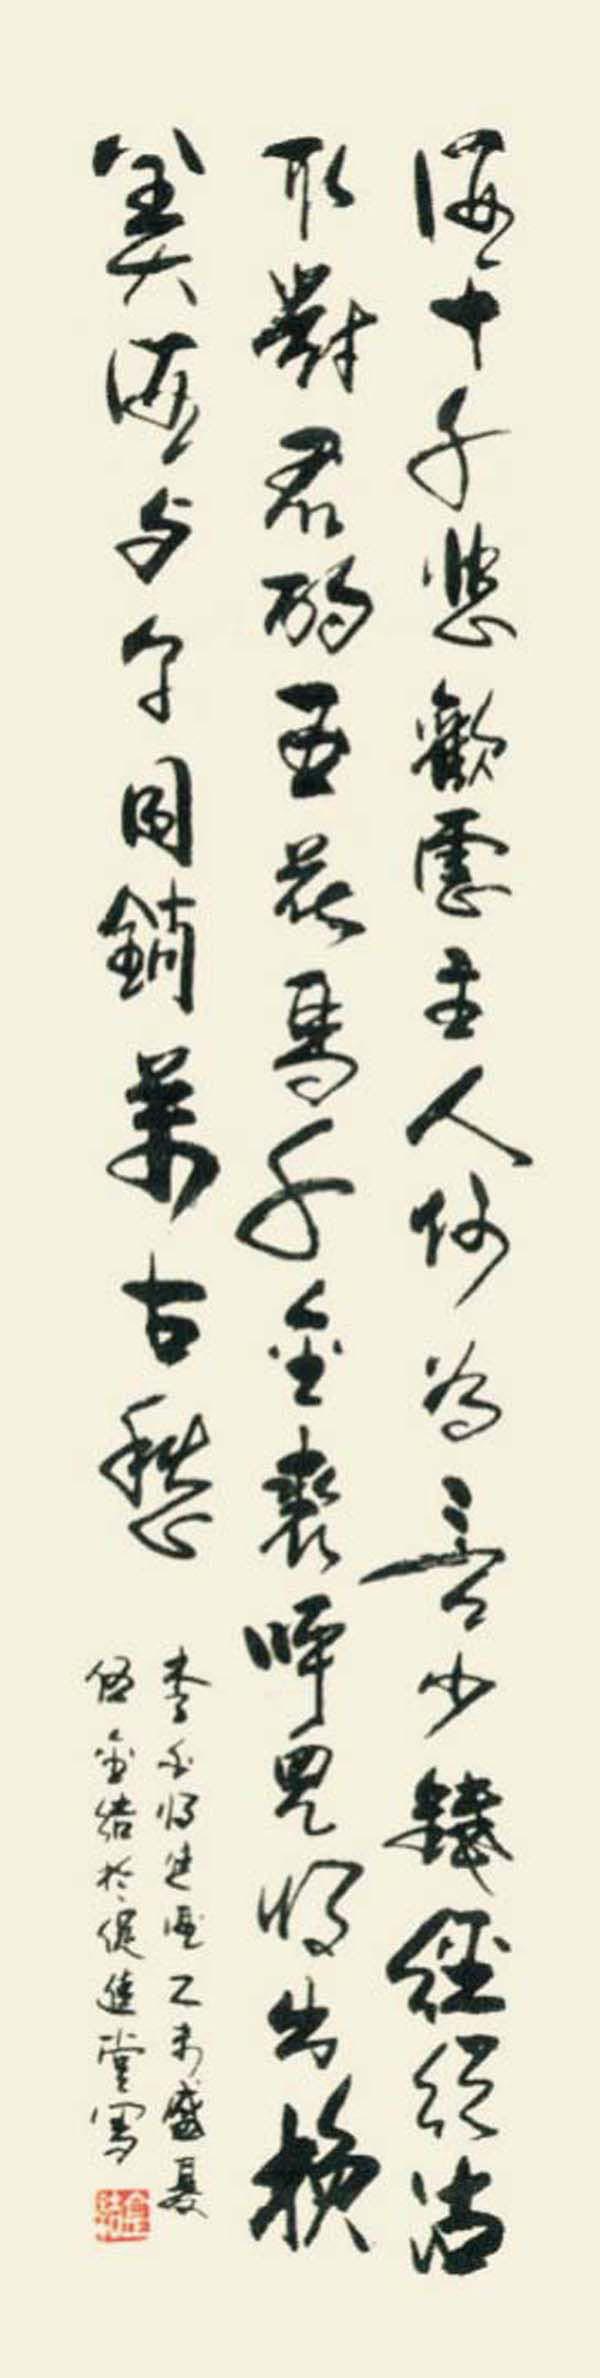 酒十千恣歡謔主人何為言少錢徑須沽
取對君酌五花馬千金裘呼兒將出換
美酒与尔同銷萬古愁
李白將進酒乙未盛夏
金於堂寫